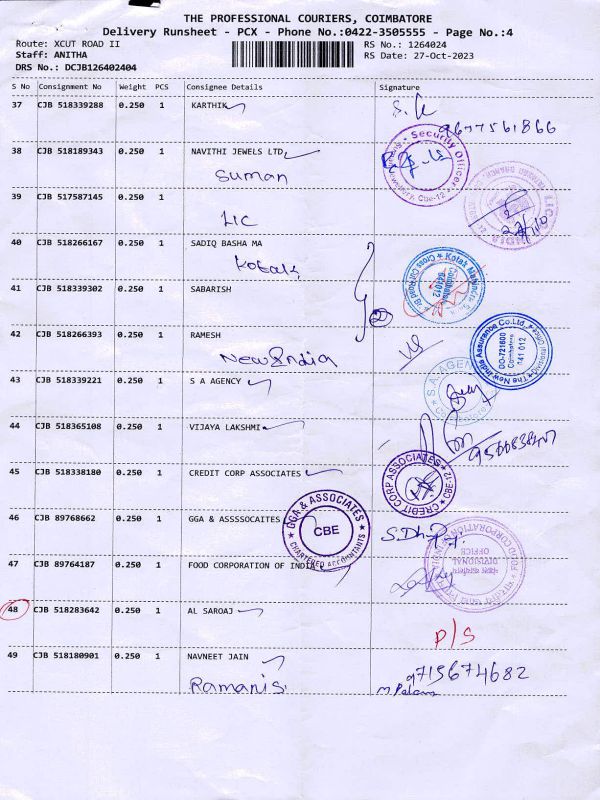 THE PROFESSIONAL COURIERS, COIMBATORE
Delivery Runsheet - PCX - Phone No.:0422-3505555 - Page No.:4
Route: XCUT ROAD II
RS No.: 1264024
Staff: ANITHA
RS Date: 27-Oct-2023
DRS No.: DCJB126402404
S No Consignment No Weight PCS Consignee Details Signature
37 CJB 518339288 0.250 1 KARTHIK
9677561866
38 CJB 518189343 0.250 1 NAVITHI JEWELS LTD
Security Officer
Suman
39 CJB 517587145 0.250 1
LIC
40 CJB 518266167 0.250 1 SADIQ BASHA MA
Kotak
41 CJB 518339302 0.250 1 SABARISH
Kotak Mahindra
Cross Cut Road Br
Coimbatore
641012
42 CJB 518266393 0.250 1 RAMESH
New India
The New India Assurance Co.Ltd.
DO-721600
Coimbatore
641 012
43 CJB 518339221 0.250 1 S A AGENCY
S.A. AGENCY
44 CJB 518365108 0.250 1 VIJAYA LAKSHMI
45 CJB 518338180 0.250 1 CREDIT CORP ASSOCIATES
CREDIT CORP ASSOCIATES
CBE-12
46 CJB 89768662 0.250 1 GGA & ASSSSOCAITES
GGA & ASSOCIATES
CBE
CHARTERED ACCOUNTANTS
47 CJB 89764187 0.250 1 FOOD CORPORATION OF INDIA
FOOD CORPORATION
DIVISIONAL
OFFICE
48 CJB 518283642 0.250 1 AL SAROAJ
P/S
49 CJB 518180901 0.250 1 NAVNEET JAIN
9715674682
Ramanis